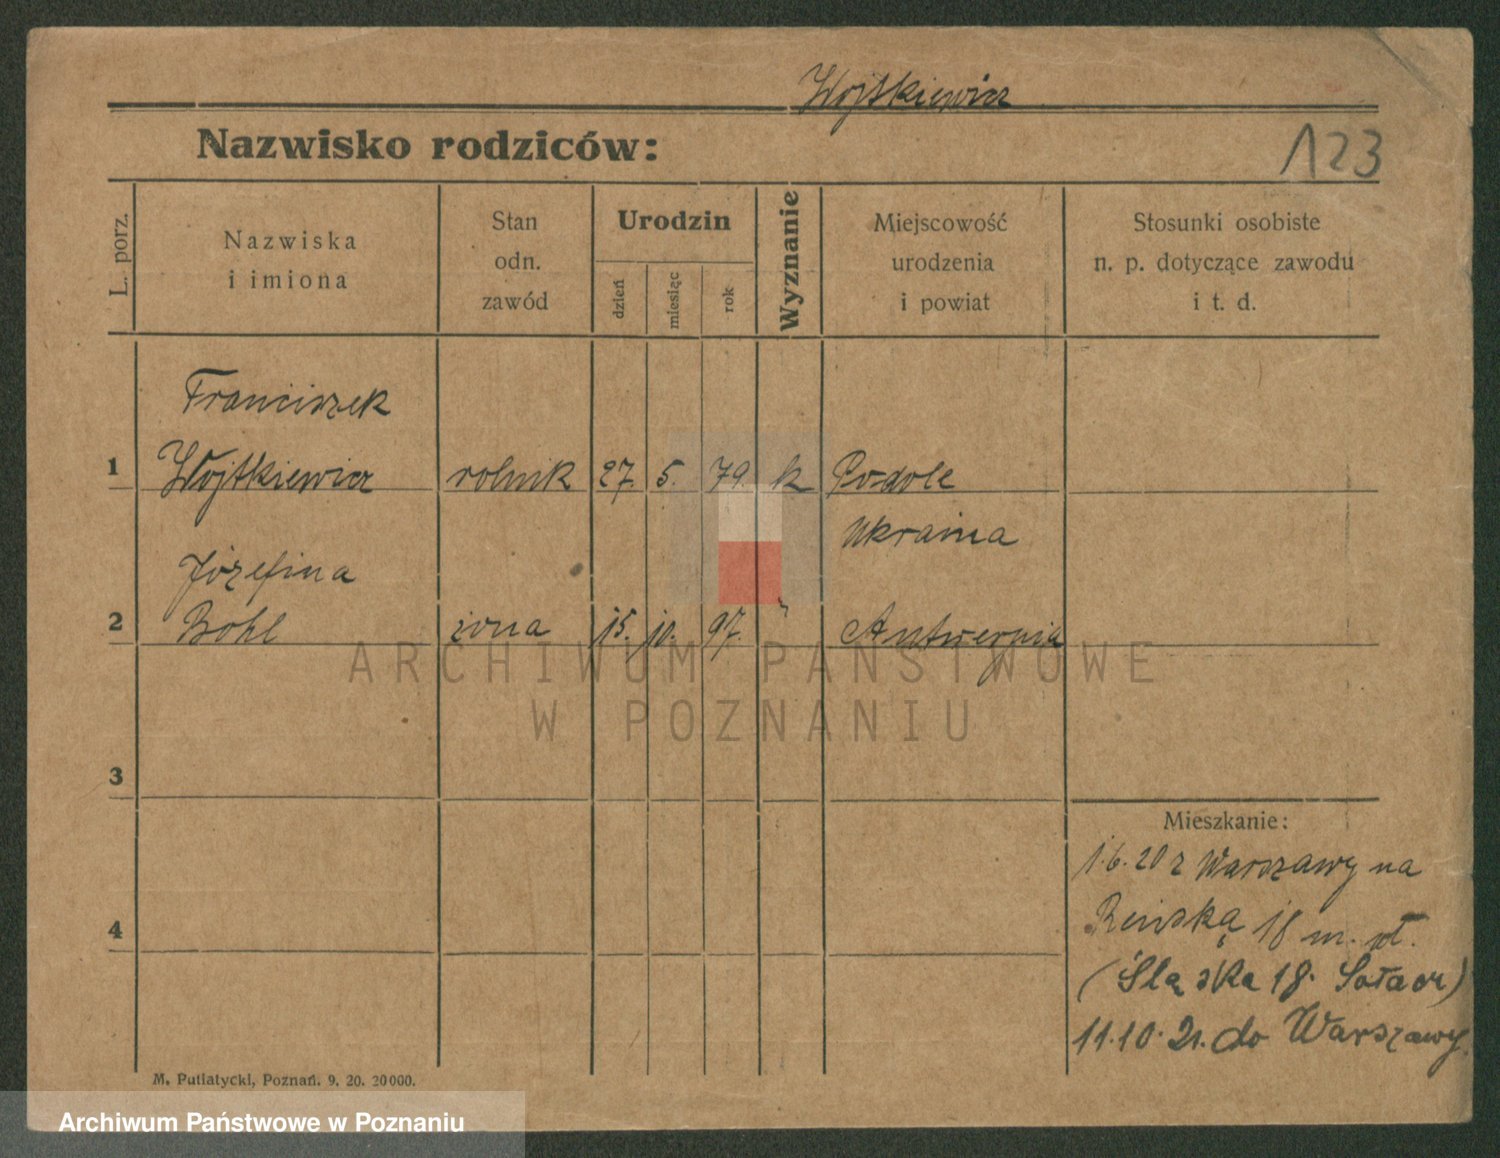 Wojtkiewicz
Nazwisko rodziców:
123
L. porz.
Nazwiska
i imiona
Stan
odn.
zawód
Urodzin
dzień
miesiąc
rok
Wyznanie
Miejscowość
urodzenia
i powiat
Stosunki osobiste
n. p. dotyczące zawodu
i t. d.
Franciszek
1 Wojtkiewicz rolnik 27. 5. 79. k Podole
Ukraina
Józefina
2 Bohl żona 15. 10. 97. " Antwerpia
ARCHIWUM PAŃSTWOWE
W POZNANIU
3
Mieszkanie:
1.6.20 z Warszawy na
18 m. wł.
4
(Śląska 18. Sołacz)
11.10.21. do Warszawy.
M. Putiatycki, Poznań. 9. 20. 20000.
Archiwum Państwowe w Poznaniu